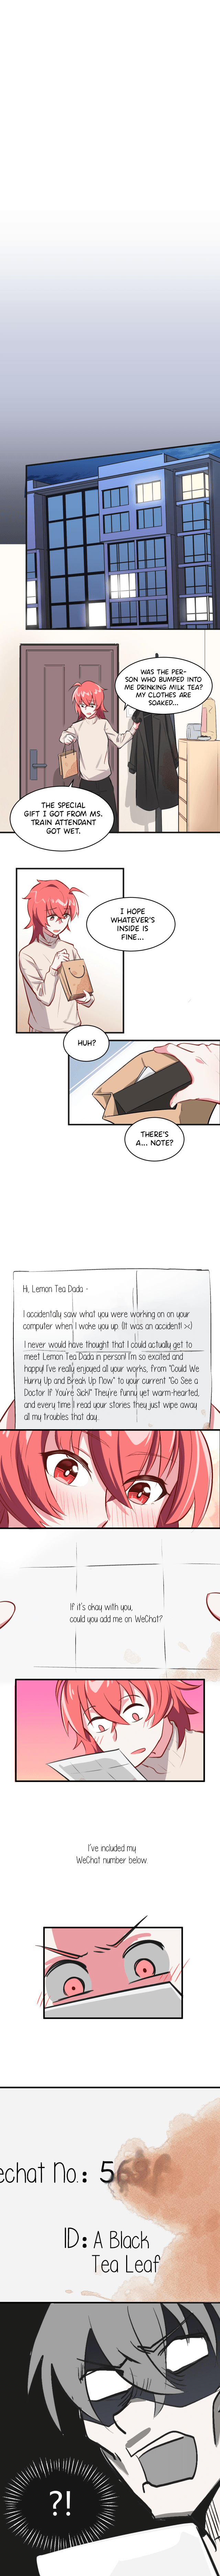 WAS THE PER-
SON WHO BUMPED INTO
ME DRINKING MILK TEA?
MY CLOTHES ARE
SOAKED...
THE SPECIAL
GIFT I GOT FROM MS.
TRAIN ATTENDANT
GOT WET.
I HOPE
WHATEVER'S
INSIDE IS
FINE...
HUH?
THERE'S
A... NOTE?
Hi, Lemon Tea Dada -
I accidentally saw what you were working on on your
computer when I woke you up. (It was an accident! >.<)
I never would have thought that I could actually get to
meet Lemon Tea Dada in person! I'm so excited and
happy! I've really enjoyed all your works, from "Could We
Hurry Up and Break Up Now" to your current "Go See a
Doctor If You're Sick!" They're funny yet warm-hearted,
and every time I read your stories they just wipe away
all my troubles that day.
If it's okay with you,
could you add me on WeChat?
I've included my
WeChat number below.
echat No.: 5
ID: A Black
Tea Leaf
?!